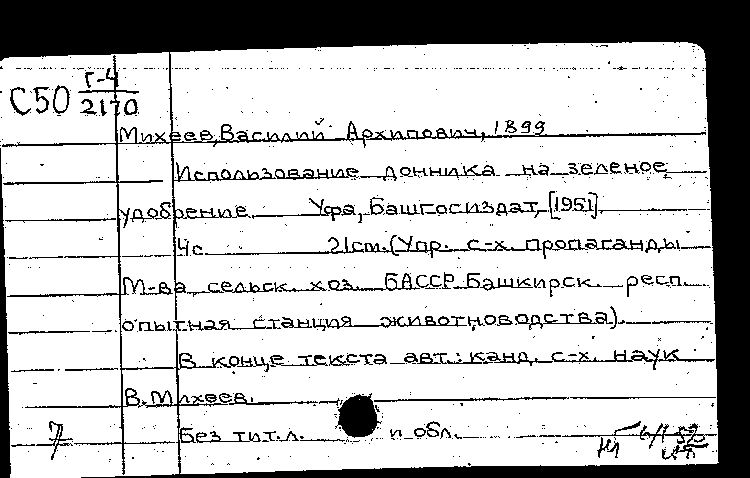 С50 Г-4
2170
Михеев, Василий Архипович, 1899
Использование донника на зеленое
удобрение. Уфа, Башгосиздат, [1951].
4с. 21cm. (Упр. с-х. пропаганды
М-ва сельск. хоз. БАССР. Башкирск. респ.
опытная станция животноводства).
В конце текста авт.: канд. с-х. наук
В. Михеев.
7 Без тит. л. и обл.